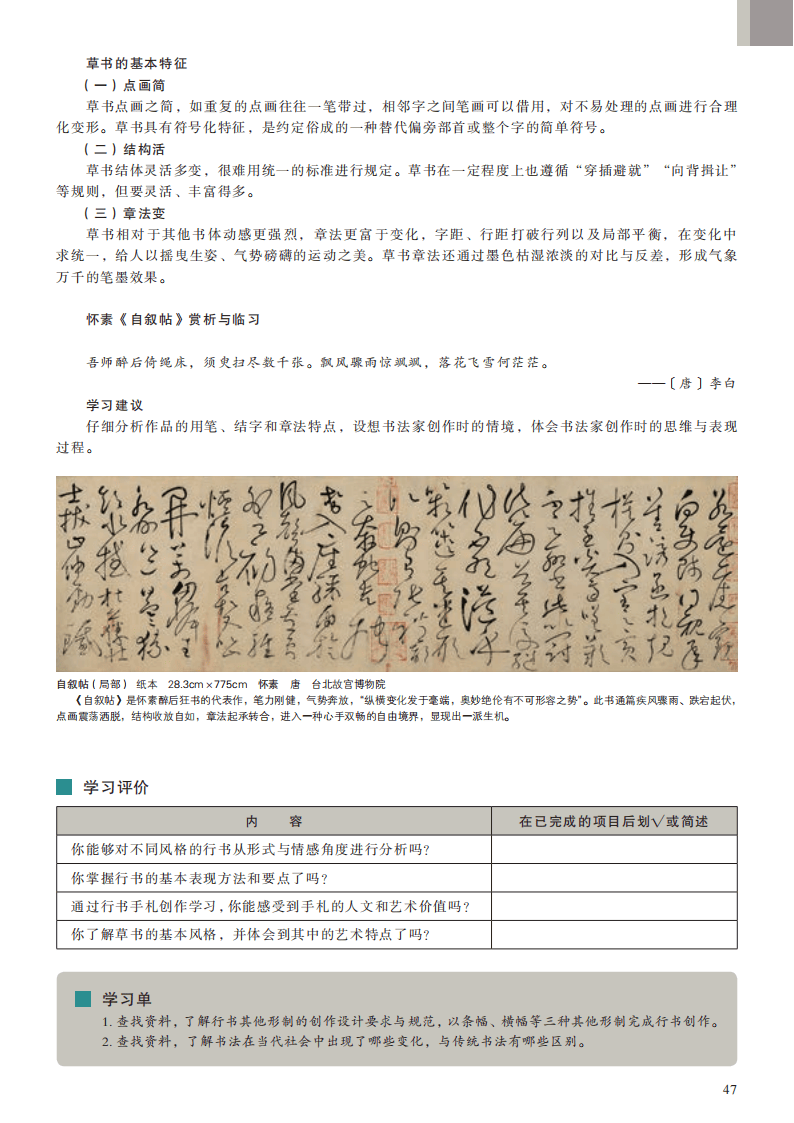 草书的基本特征
（一）点画简
草书点画之简，如重复的点画往往一笔带过，相邻字之间笔画可以借用，对不易处理的点画进行合理
化变形。草书具有符号化特征，是约定俗成的一种替代偏旁部首或整个字的简单符号。
（二）结构活
草书结体灵活多变，很难用统一的标准进行规定。草书在一定程度上也遵循“穿插避就”“向背揖让”
等规则，但要灵活、丰富得多。
（三）章法变
草书相对于其他书体动感更强烈，章法更富于变化，字距、行距打破行列以及局部平衡，在变化中
求统一，给人以摇曳生姿、气势磅礴的运动之美。草书章法还通过墨色枯湿浓淡的对比与反差，形成气象
万千的笔墨效果。
怀素《自叙帖》赏析与临习
吾师醉后倚绳床，须臾扫尽数千张。飘风骤雨惊飒飒，落花飞雪何茫茫。
——〔唐〕李白
学习建议
仔细分析作品的用笔、结字和章法特点，设想书法家创作时的情境，体会书法家创作时的思维与表现
过程。
自叙帖（局部） 纸本 28.3cm×775cm 怀素 唐 台北故宫博物院
《自叙帖》是怀素醉后狂书的代表作，笔力刚健，气势奔放，“纵横变化发于毫端，奥妙绝伦有不可形容之势”。此书通篇疾风骤雨、跌宕起伏，
点画震荡洒脱，结构收放自如，章法起承转合，进入一种心手双畅的自由境界，显现出一派生机。
学习评价
内 容 在已完成的项目后划√或简述
你能够对不同风格的行书从形式与情感角度进行分析吗？
你掌握行书的基本表现方法和要点了吗？
通过行书手札创作学习，你能感受到手札的人文和艺术价值吗？
你了解草书的基本风格，并体会到其中的艺术特点了吗？
学习单
1. 查找资料，了解行书其他形制的创作设计要求与规范，以条幅、横幅等三种其他形制完成行书创作。
2. 查找资料，了解书法在当代社会中出现了哪些变化，与传统书法有哪些区别。
47